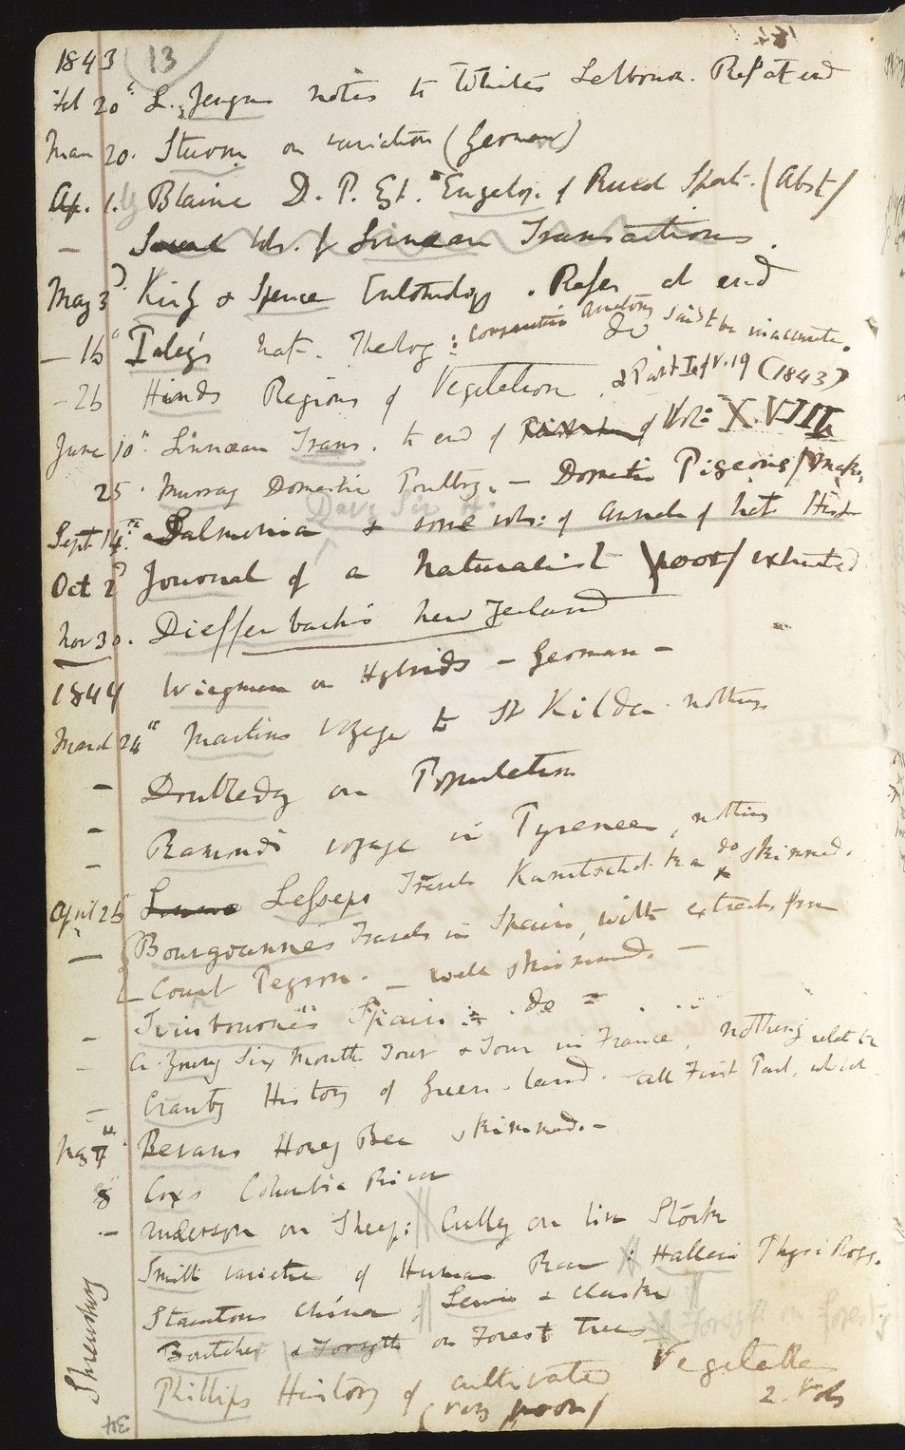 1843 13
Feb 20th L. Jenyns notes to Whites Selborne. Ref at end
Mar 20. Sturm on variation (German)
Ap. 1. Blaine D. P. Esq. Encyclop. of Rural Sport. (Abst/
— Several Vols. of Linnean Transactions.
May 3d Kirby & Spence Entomology. Refer at end
— 16th Paley's Nat. Theolog: comparative anatomy said to be inaccurate.
— 26 Hinds Regions of Vegetation. & Part I of V. 19 (1843)
June 10th Linnaean Trans. to end of of Vol: XVIII
25. Murray Domestic Poultry. — Domestic Pigeons/
Davy Sir H.
Sept 14th Salmonia & some vols: of Annals of Nat Hist
Oct 2d Journal of a Naturalist \poor/ extracted
Nov 30. Dieffenbach's New Zealand
1844 Wiegman on Hybrids — German —
March 24th Martins Voyage to St Kilda nothing
— Doubleday on Population
— Ramond's voyage in Pyrenees, nothing
April 26 Lesseps Travels Kamtschatka do skimmed.
— Bourgoanne's Travels in Spain, with extracts from
Count Peyron. — well skimmed. —
— Swinbourne's Spain: do =
— A. Young Six Month Tour & Tour in France. nothing relat to
— Crantz History of Green-land. — all First Part,
May 7th Bevans Honey Bee skimmed. —
8th Coxs Columbia River
— Anderson on Sheep: Cully on live Stock
Smith varieties of Human Race: Hallers Physiology.
Staunton's China; Lewis & Clarke
Boutcher & Forsyth on Forest Trees
Phillips History of cultivated Vegetables
(very poor) 2. Vols
Shrewsbury